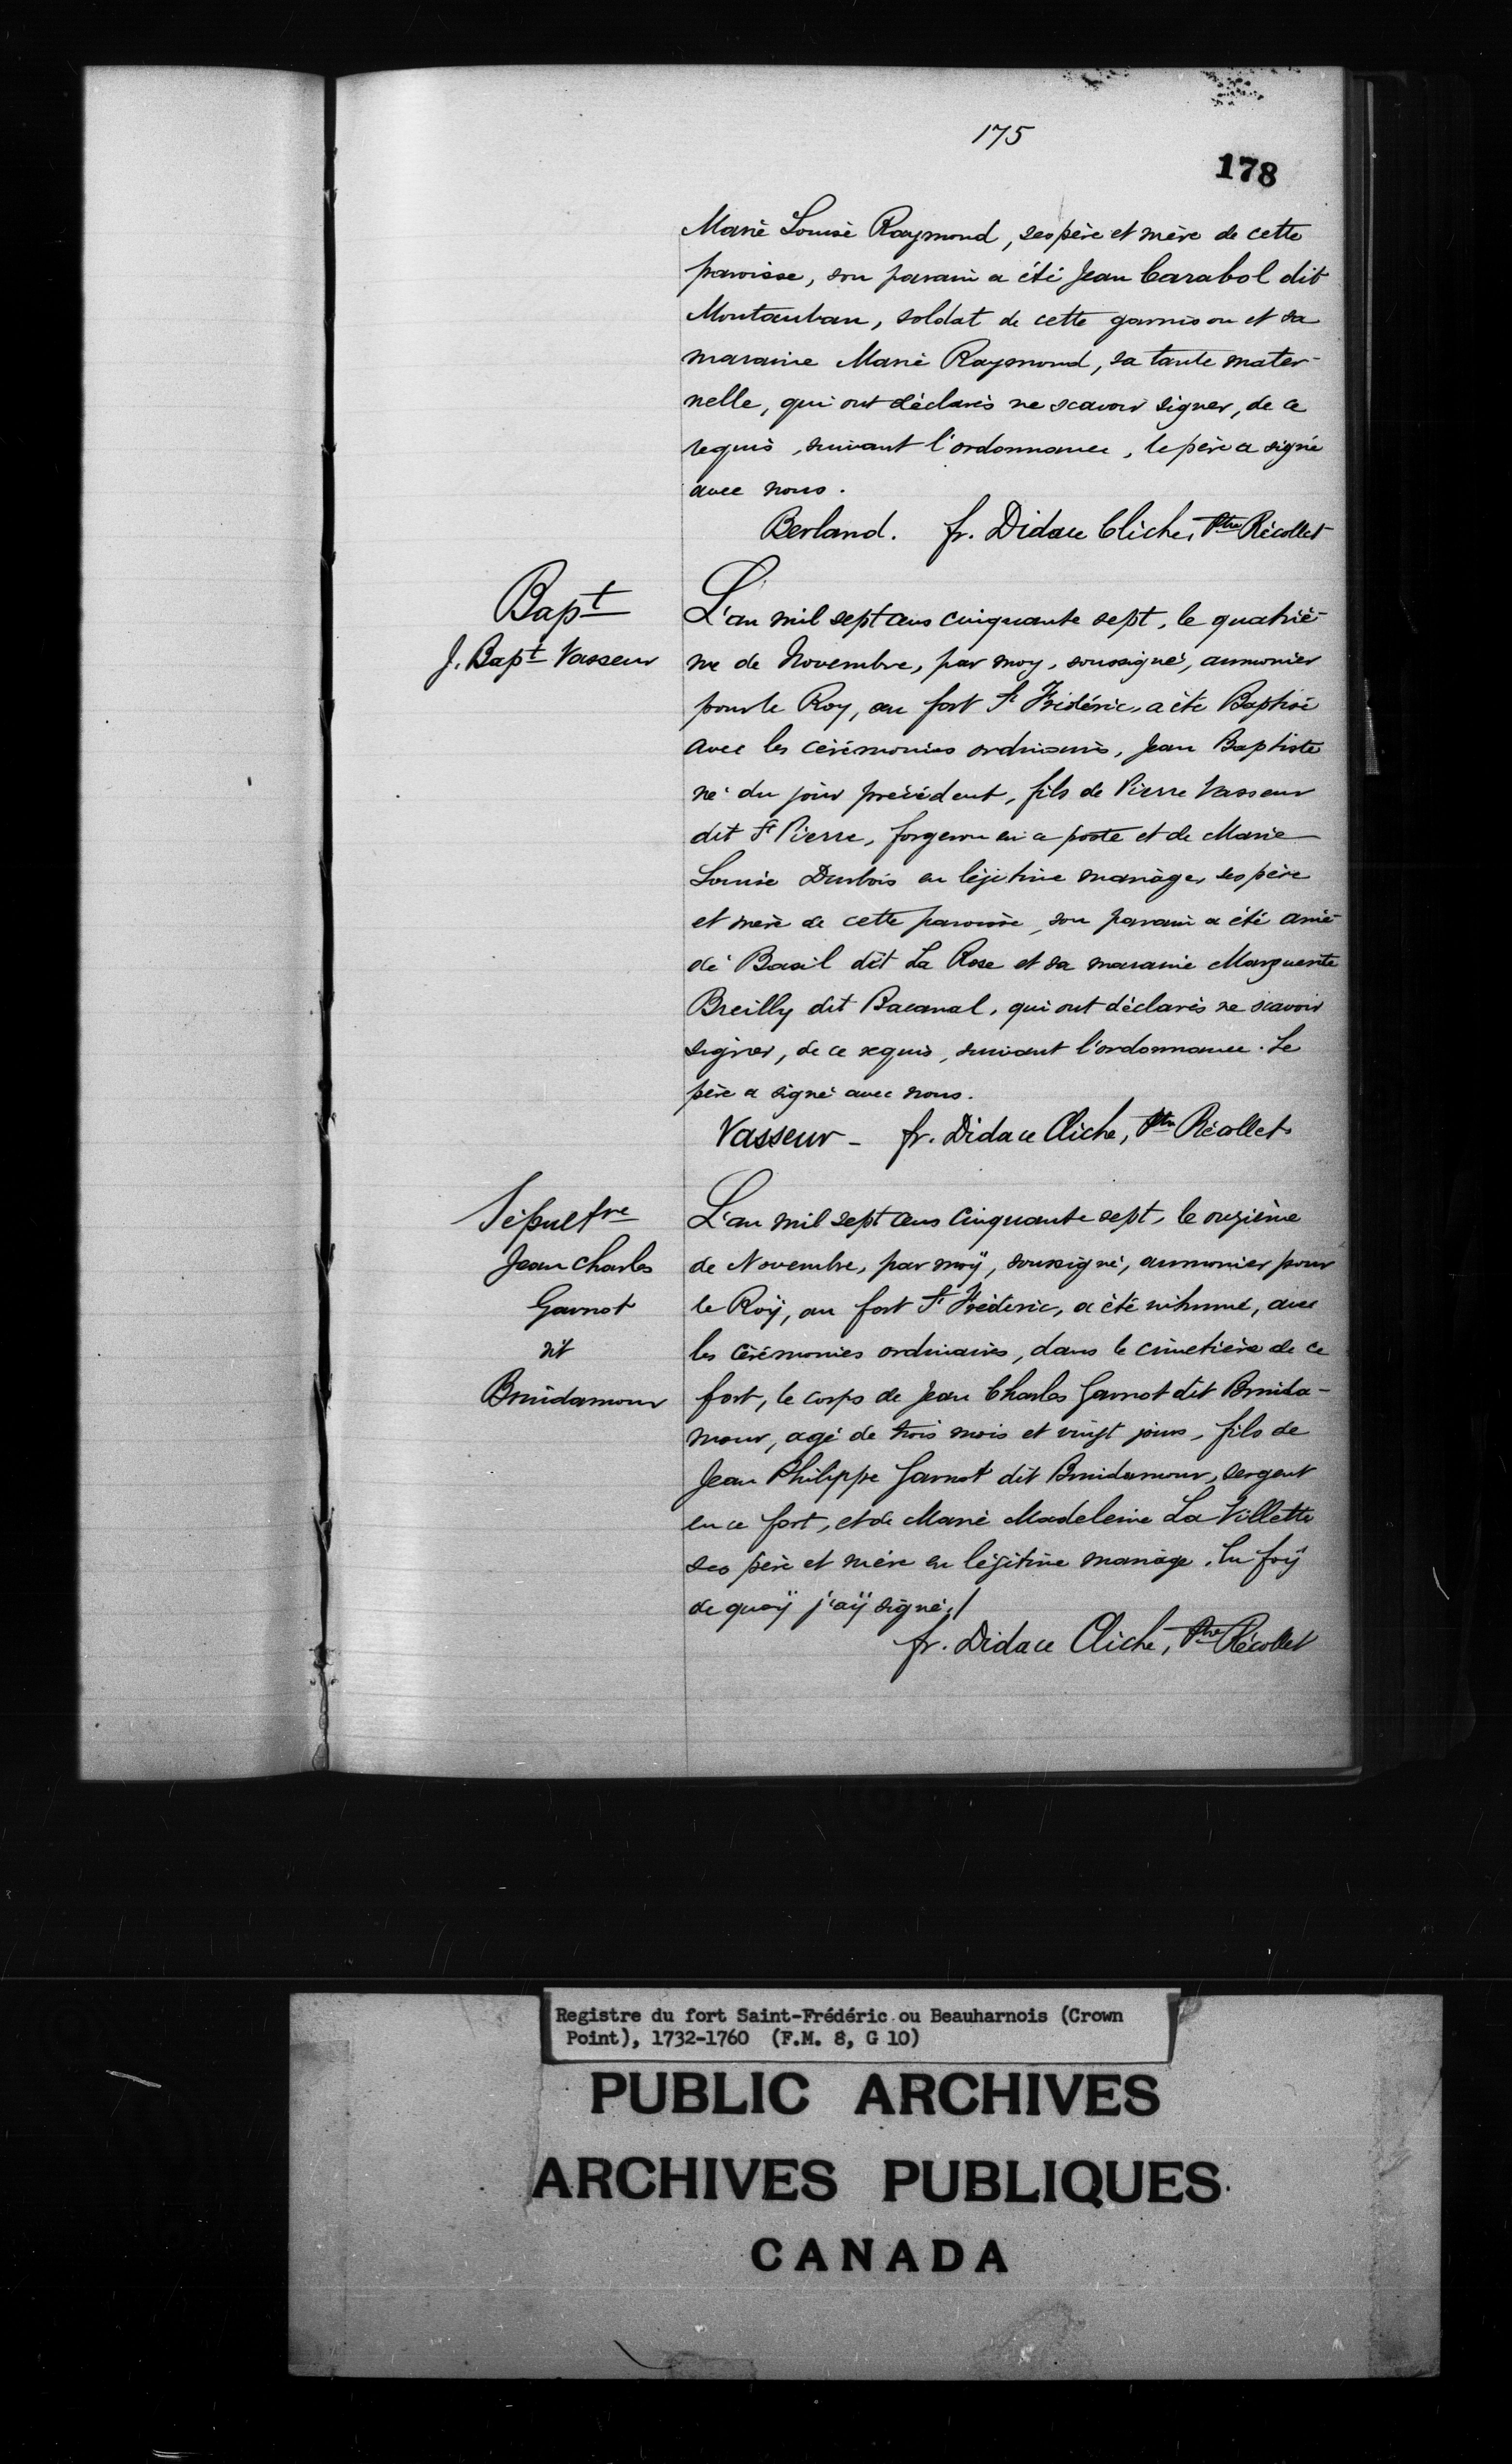 175
178
Marie Louise Raymond, ses père et mère de cette
paroisse, son parain a été Jean Carabol dit
Montauban, soldat de cette garnison et sa
maraine Marie Raymond, sa tante mater-
nelle, qui ont déclarés ne scavoir signer, de ce
requis, suivant l'ordonnance, le père a signé
avec nous.
Berland. fr. Didace Cliche, Ptre Récollet
Bapt
J. Bapt Vasseur
L'an mil sept cens cinquante sept, le quatriè-
me de Novembre, par moy, soussigné, aumonier
pour le Roy, au fort St Frédéric, a été Baptisé
avec les cérémonies ordinaires, Jean Baptiste
né du jour précédent, fils de Pierre Vasseur
dit St Pierre, forgeron en ce poste et de Marie
Louise Dubois en léjitime mariage, ses père
et mère de cette paroisse, son parain a été
Basil dit La Rose et sa maraine Marguerite
Breilly dit Bacanal, qui ont déclarés ne scavoir
signer, de ce requis, suivant l'ordonnance. Le
père a signé avec nous.
Vasseur - fr. Didace Cliche, Ptre Récollet
Sépultre
Jean Charles
Garnot
dit
Bruidamour
L'an mil sept cens cinquante sept, le onzième
de Novembre, par moÿ, soussigné, aumonier pour
le Roÿ, au fort St Fréderic, a été inhumé, avec
les cérémonies ordinaires, dans le cimetière de ce
fort, le corps de Jean Charles Garnot dit Bruida-
mour, agé de trois mois et vingt jours, fils de
Jean Philippe Garnot dit Bruidamour, sergent
en ce fort, et de Marie Madeleine La Villette
ses père et mère en légitime mariage. En foÿ
de quoÿ j'aÿ signé./
fr. Didace Cliche, Ptre Récollet
Registre du fort Saint-Frédéric ou Beauharnois (Crown
Point), 1732-1760 (F.M. 8, G 10)
PUBLIC ARCHIVES
ARCHIVES PUBLIQUES
CANADA